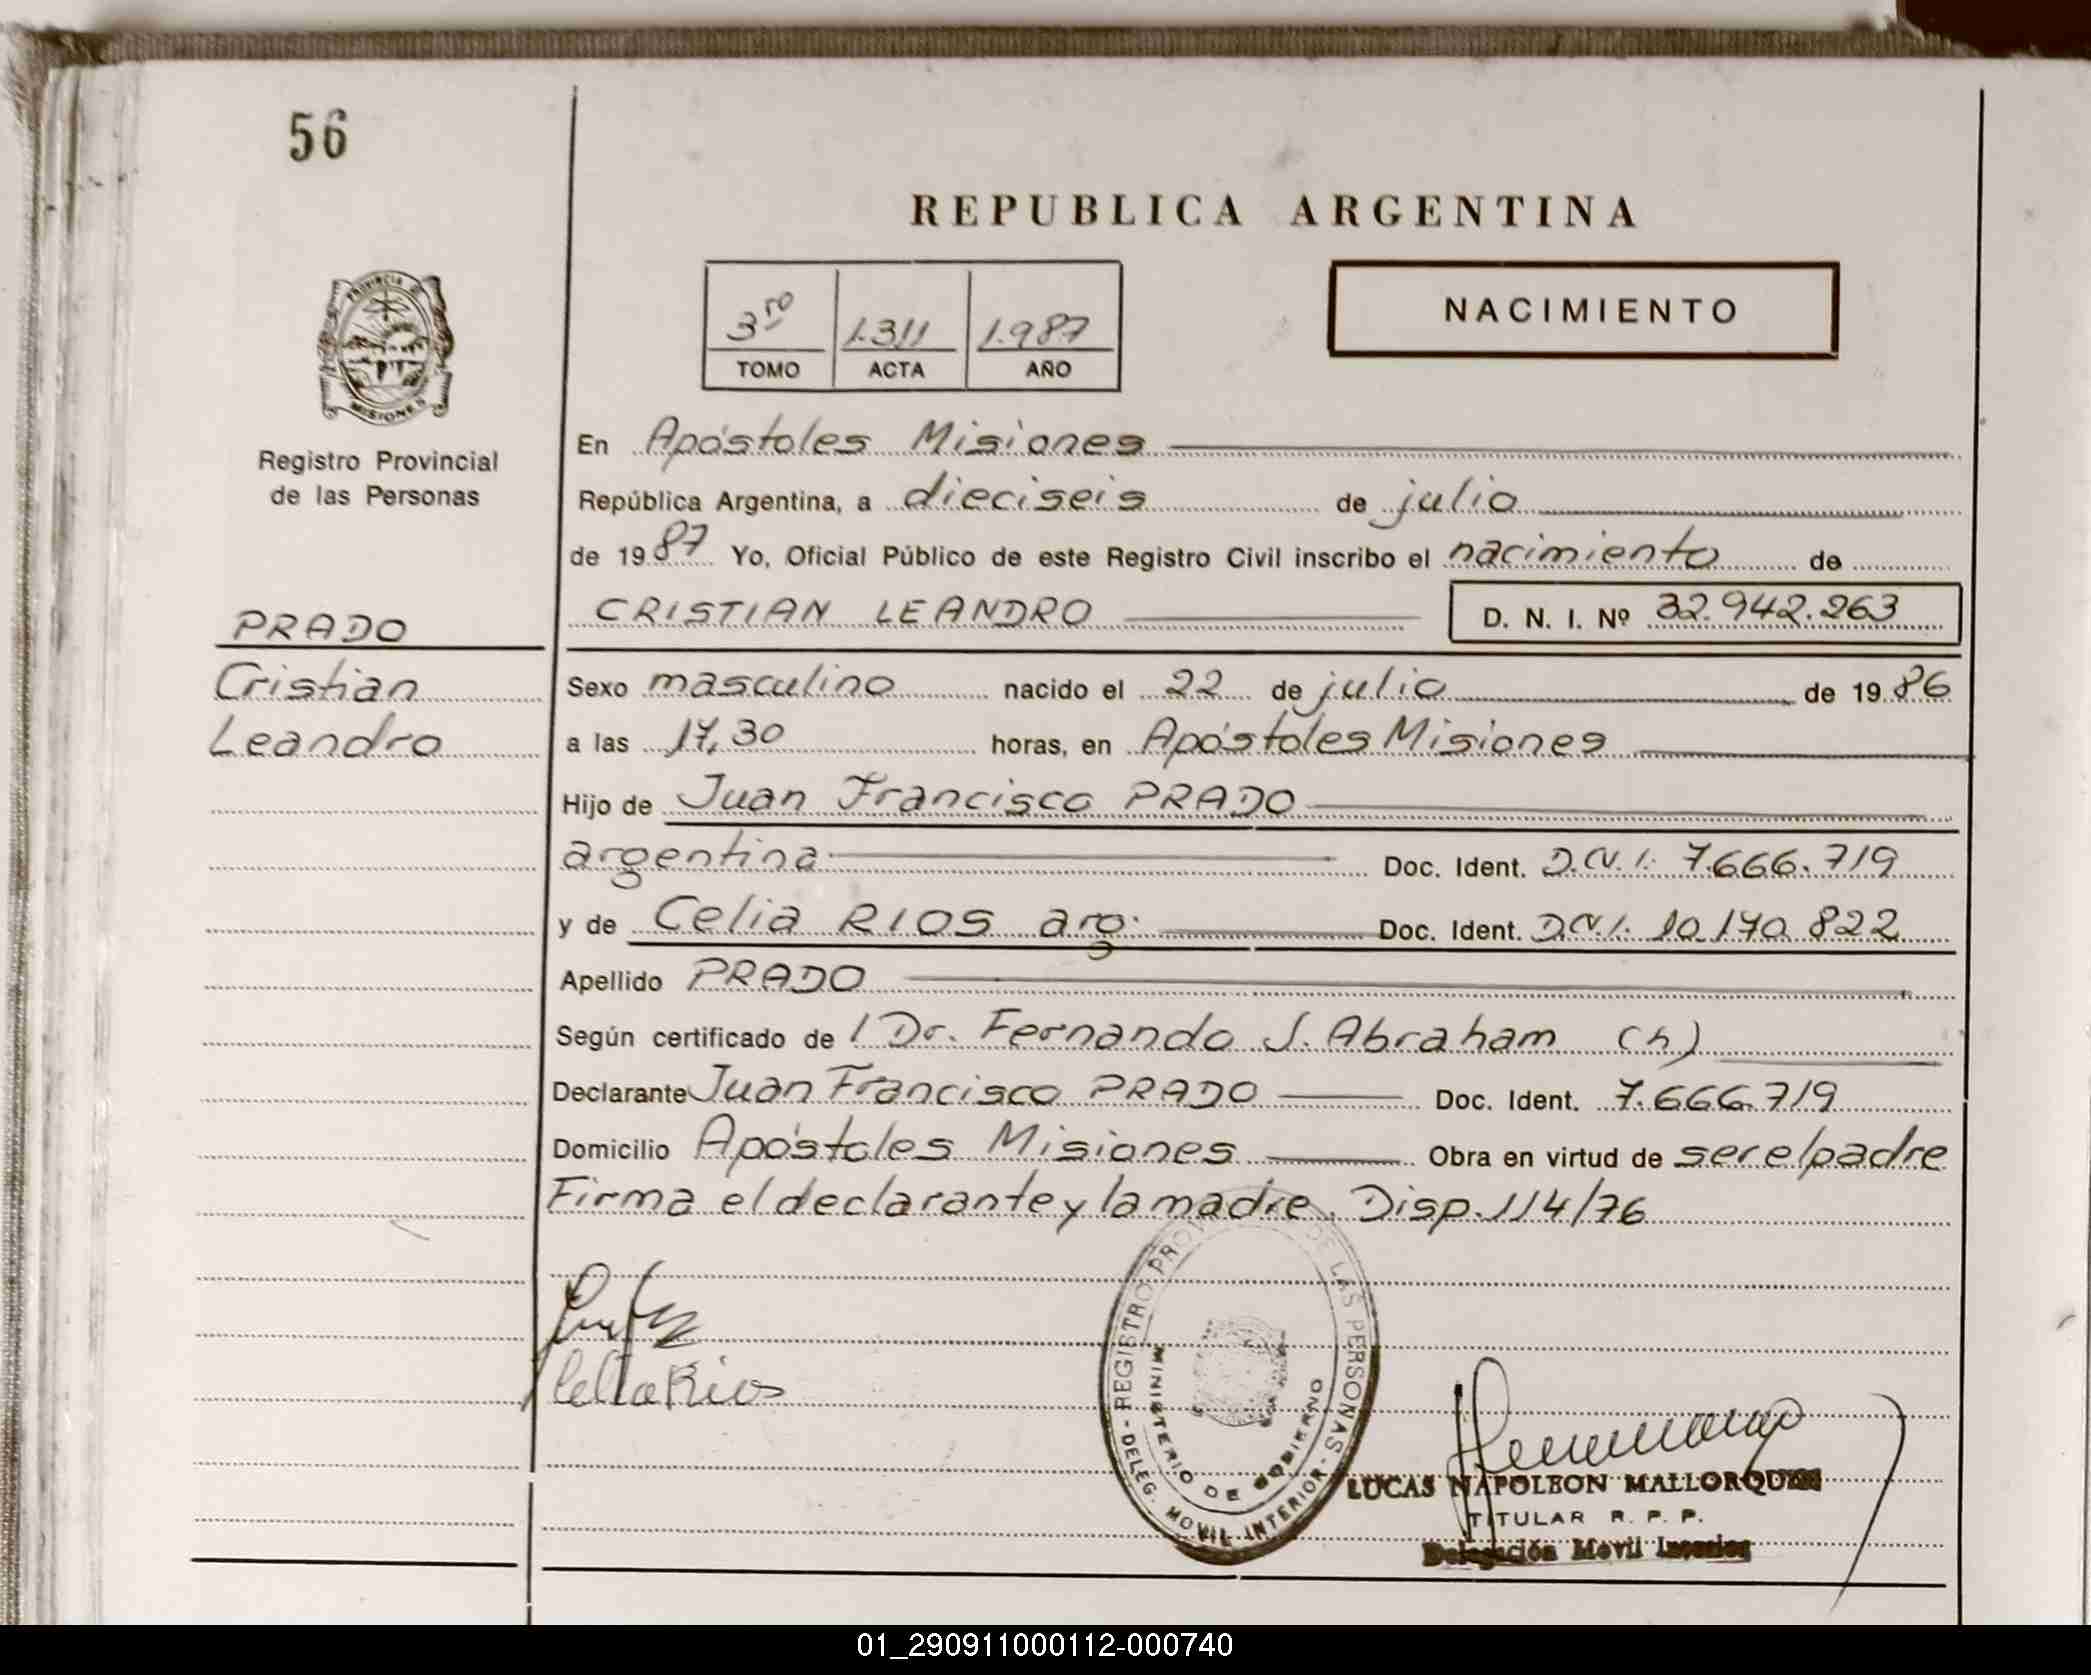 56
REPUBLICA ARGENTINA
3ro 1.311 1.987
TOMO ACTA AÑO
NACIMIENTO
PROVINCIA D
MISIONES
Registro Provincial
de las Personas
PRADO
Cristian
Leandro
En Apóstoles Misiones
República Argentina, a dieciseis de julio
de 1987 Yo, Oficial Público de este Registro Civil inscribo el nacimiento de
CRISTIAN LEANDRO D. N. I. Nº 32.942.263
Sexo masculino nacido el 22 de julio de 1986
a las 17,30 horas, en Apóstoles Misiones
Hijo de Juan Francisco PRADO
argentina Doc. Ident. D.N.I. 7.666.719
y de Celia RIOS arg. Doc. Ident. D.N.I. 10.170.822
Apellido PRADO
Según certificado de / Dr. Fernando J. Abraham (h)
Declarante Juan Francisco PRADO Doc. Ident. 7.666.719
Domicilio Apóstoles Misiones Obra en virtud de ser el padre
Firma el declarante y la madre. Disp. 114/76
Celia Rios
REGISTRO PROV DE LAS PERSONAS
MINISTERIO DE GOBIERNO
DELEG. MOVIL INTERIOR
LUCAS NAPOLEON MALLORQUIN
TITULAR R. P. P.
Delegación Movil Interior
01_290911000112-000740